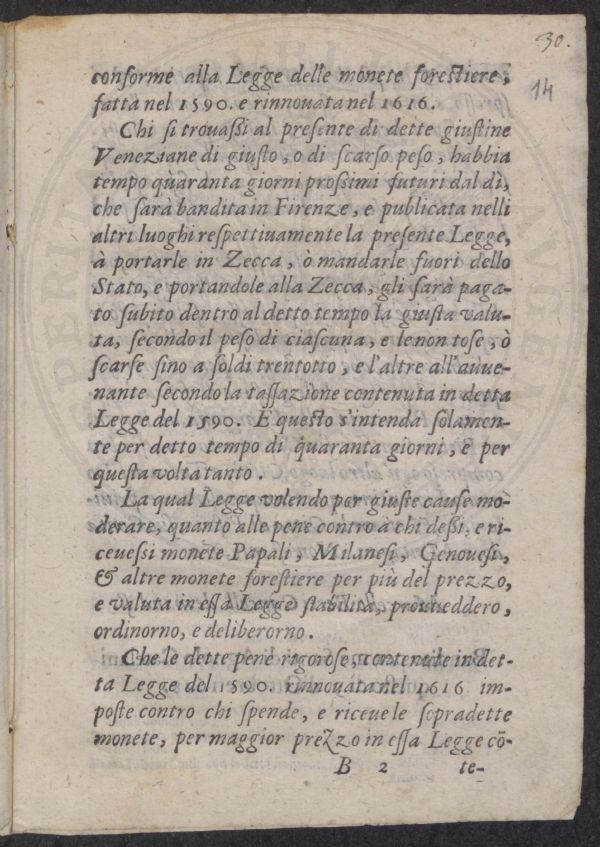 30.
14
conforme alla Legge delle monete forestiere,
fatta nel 1590. e rinnouata nel 1616.
Chi si trouassi al presente di dette giustine
Veneziane di giusto, o di scarso peso, habbia
tempo quaranta giorni prossimi futuri dal dì,
che sarà bandita in Firenze, e publicata nelli
altri luoghi respettiuamente la presente Legge,
à portarle in Zecca, o mandarle fuori dello
Stato, e portandole alla Zecca, gli sarà paga-
to subito dentro al detto tempo la giusta valu-
ta, secondo il peso di ciascuna, e le non tose, ò
scarse sino a soldi trentotto, e l'altre all'auue-
nante secondo la tassazione contenuta in detta
Legge del 1590. E questo s'intenda solamen-
te per detto tempo di quaranta giorni, e per
questa volta tanto.
La qual Legge volendo per giuste cause mo-
derare, quanto alle pene contro a chi dessi, e ri-
ceuessi monete Papali, Milanesi, Genouesi,
& altre monete forestiere per più del prezzo,
e valuta in essa Legge stabilita, prouueddero,
ordinorno, e deliberorno.
Che le dette pene rigorose, contenute in det-
ta Legge del 1590. rinnouata nel 1616 im-
poste contro chi spende, e riceue le sopradette
monete, per maggior prezzo in essa Legge cō-
B 2 te-